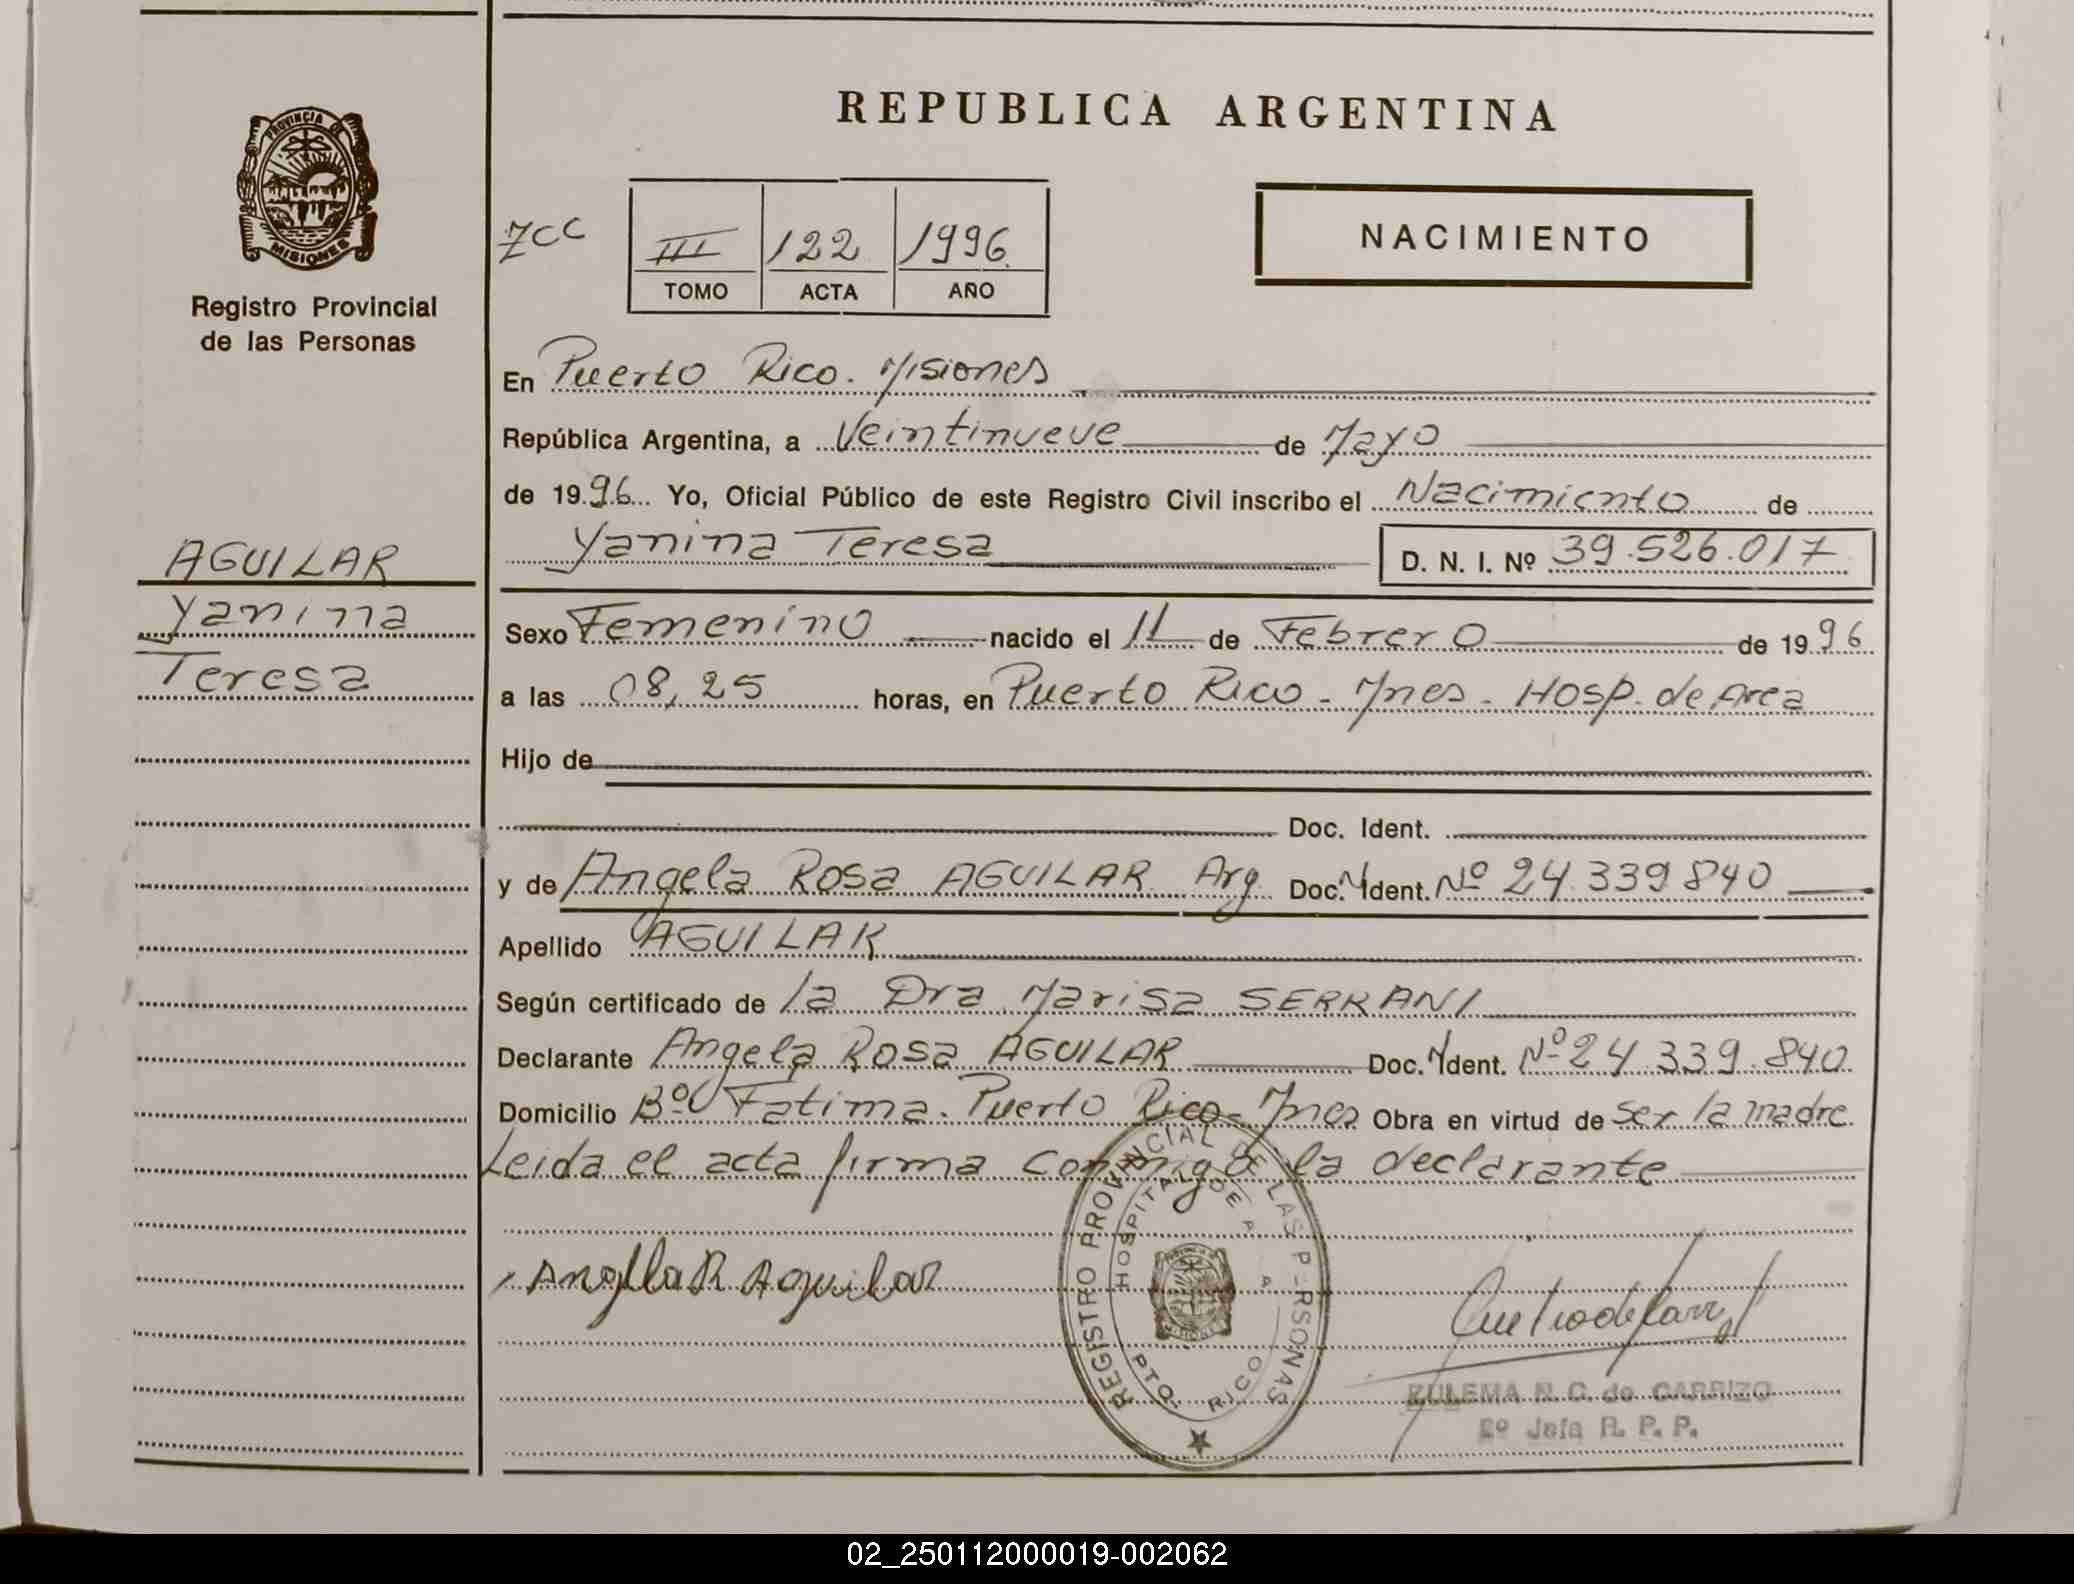 REPUBLICA ARGENTINA
PROVINCIA DE
MISIONES
Registro Provincial
de las Personas
ZCC
III 122 1996
TOMO ACTA AÑO
NACIMIENTO
En Puerto Rico. Misiones
República Argentina, a Veintinueve de Mayo
de 1996 Yo, Oficial Público de este Registro Civil inscribo el Nacimiento de
Yanina Teresa D. N. I. Nº 39.526.017
AGUILAR
Yanina
Teresa
Sexo Femenino nacido el 11 de Febrero de 1996
a las 08,25 horas, en Puerto Rico - Mnes - Hosp. de Area
Hijo de
Doc. Ident.
y de Angela Rosa AGUILAR Arg. Doc. Ident. Nº 24.339.840
Apellido AGUILAR
Según certificado de la Dra Marisa SERRANI
Declarante Angela Rosa AGUILAR Doc. Ident. Nº 24.339.840
Domicilio Bº Fatima. Puerto Rico - Mnes Obra en virtud de ser la madre
Leida el acta firma conmigo la declarante
Angela R Aguilar
REGISTRO PROVINCIAL DE LAS P-RSONAS
HOSPITAL DE
PTO. RICO
ZULEMA N. C. de CARRIZO
2º Jefa R. P. P.
02_250112000019-002062